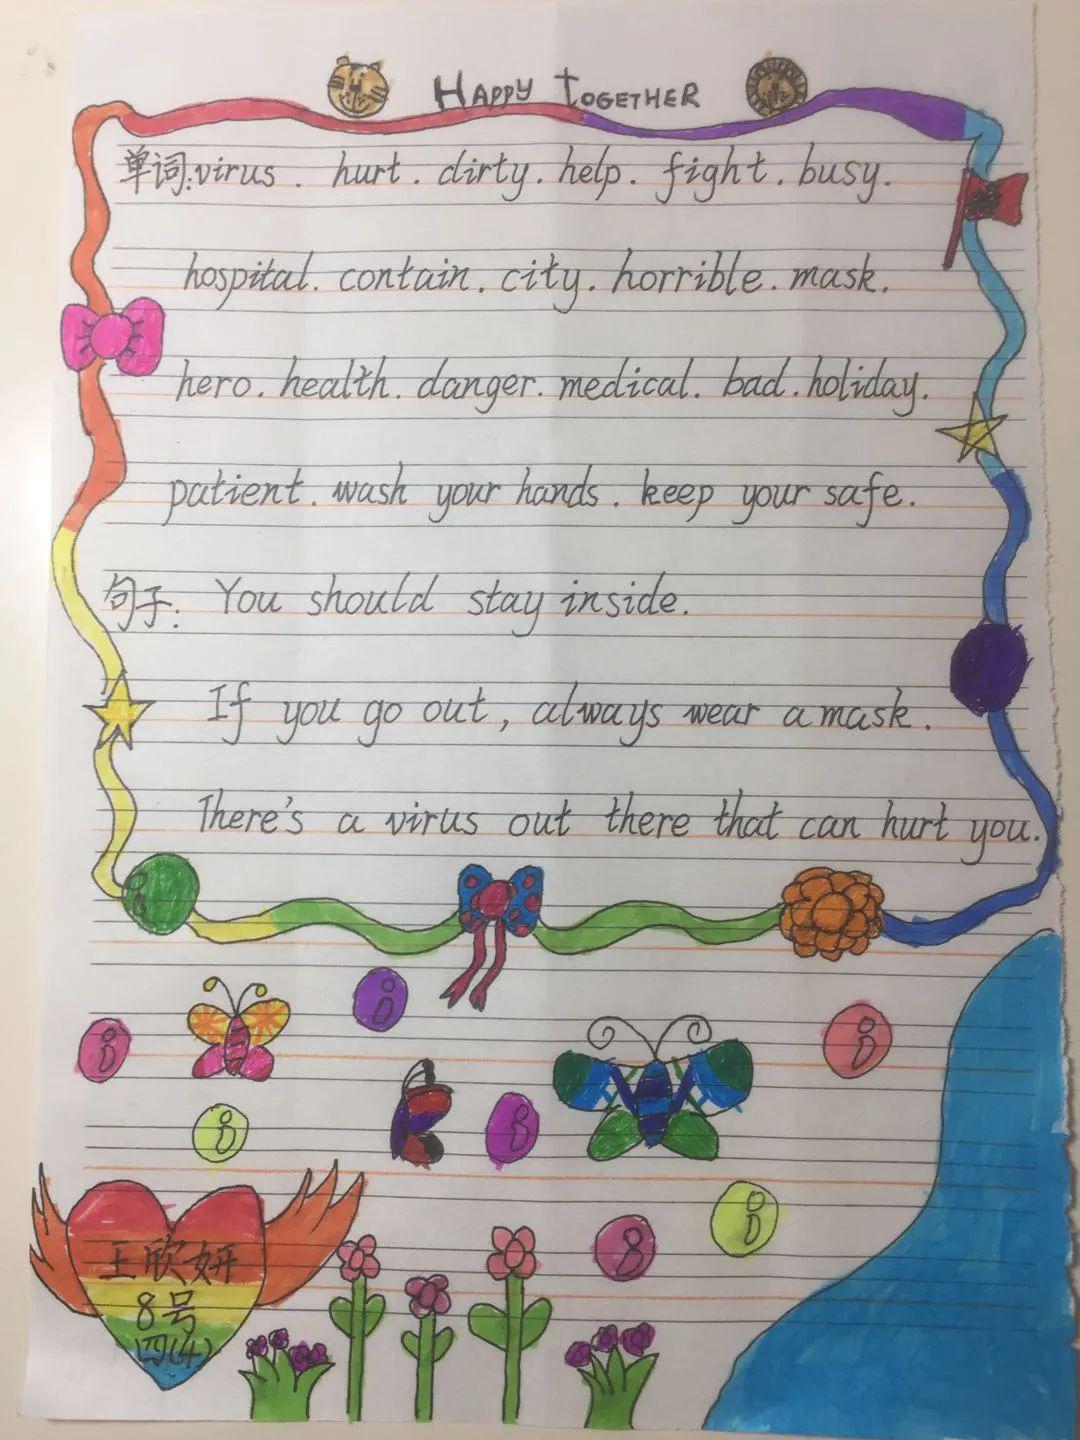 HAPPY TOGETHER
单词:virus. hurt. dirty. help. fight. busy.
hospital. contain. city. horrible. mask.
hero. health. danger. medical. bad. holiday.
patient. wash your hands. keep your safe.
句子: You should stay inside.
If you go out, always wear a mask.
There's a virus out there that can hurt you.
王欣妍
8号
四(4)